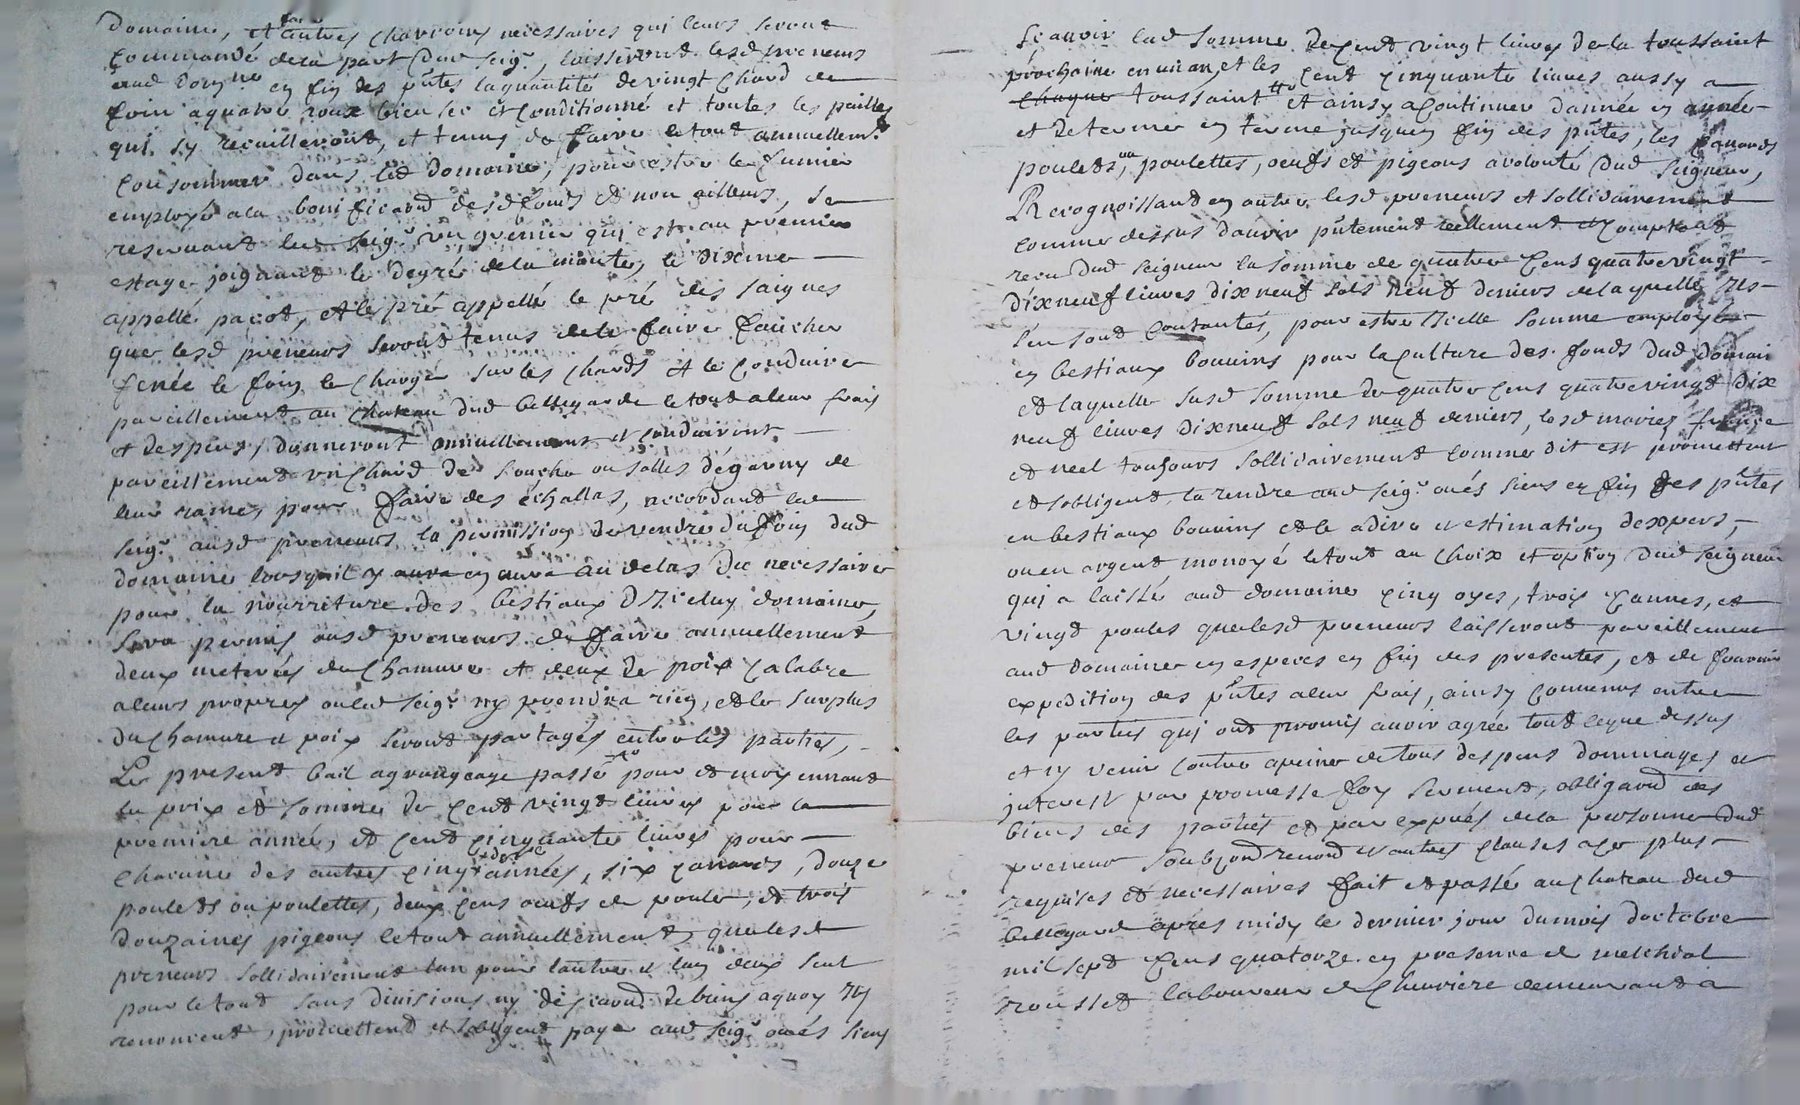 Domaine, et autres charrois necessaires qui leurs seront
commandé dela part dud seigr, laisseront lesd preneurs
aud domne en fin des pntes la quantité de vingt chard de
foin a quatre roux bien sec et conditionné et toutes les pailles
qui sy recuilleront, et tenus de faire le tout annuellemt
consommer dans led domaine, pour estre le fumier
employé ala bonificaond desd fonds et non ailleurs, se
reservant led seigr un grenier qui est au premier
estage joignant le degré dela monté, le dixme
appellé pacot, et le pré appellé le pré des saignes
que lesd preneurs seront tenus dele faire faucher
fenée le foin, le chargé sur les chards et le conduire
pareillement au chateau dud bellegarde le tout aleur frais
et despens, donneront annuellement et conduiront
pareillement un chard de souche ou solles dégarny de
leur rames pour faire des échallas, accordant led
seigr ausd preneurs la permission de vendre du foin dud
domaine lorsquil y aura en aura au delas du necessaire
pour la nourriture des bestiaux diceluy domaine,
sera permis ausd preneurs de faire annuellement
deux meterées de chamure et deux de poix calabre
aleurs propres ou led seigr ny prendra rien, et le surplus
du chamure et poix seront partagés entre les parties,
Le present bail agrangeage passé pour et moyennant
le prix et somme de cent vingt livres pour la
premiere année, et cent cinquante livres pour
chacune des autres cinq années, six canards, douze
poulets ou poulettes, deux cens oeufs de poule, et trois
douzaines pigeons le tout annuellement, que lesd
preneurs sollidairement lun pour lautre et lun deux seul
pour le tout sans divisions ny discuond de biens aquoy ils
renoncent, promettent et sobligent payer aud seigr ou és siens
scavoir lad somme de cent vingt livres de la toussaint
prochaine en un an, et les cent cinquante livres aussy a
chaque toussaint et ainsy a continuer dannée en année
et de terme en terme jusquen fin des pntes, les canards
poulets, ou poulettes, oeufs et pigeons a volonté dud seigneur,
Recognoissant en outre lesd preneurs et sollidairement
comme dessus davoir pntement reellement et comptant
receu dud seigneur la somme de quatre cens quatrevingt
dixneuf livres dixneuf sols neuf deniers de laquelle ils
sen sont contantés, pour estre icelle somme employé
en bestiaux bouvins pour la culture des fonds dud domain
et laquelle susd somme de quatre cens quatrevingt dix
neuf livres dixneuf sols neuf deniers, lesd mariés
et neel tousjours sollidairement comme dit est promettent
et sobligent, la rendre aud seigr ou és siens en fin des pntes
en bestiaux bouvins et le adire et estimation dexpers,
ou en argent monoyé le tout au choix et option dud seigneur
qui a laissé aud domaine cinq oyes, trois cannes, et
vingt poules que lesd preneurs laisseront pareillement
aud domaine en especes en fin des presentes, et de fournir
expedition des pntes aleur frais, ainsy convenus entre
les parties qui ont promis avoir agreé tout ceque dessus
et ny venir contre apeine de tous despens dommages et
interest par promesse foy serment, obligaond des
biens des parties et par exprés dela personne dud
preneur soubz ond renond et autres clauses a ce plus
requises et necessaires fait et passé au chateau dud
bellegarde apres midy le dernier jour du mois doctobre
mil sept cens quatorze en presence de melchiol
rousset laboureur de chevriere demeurant a